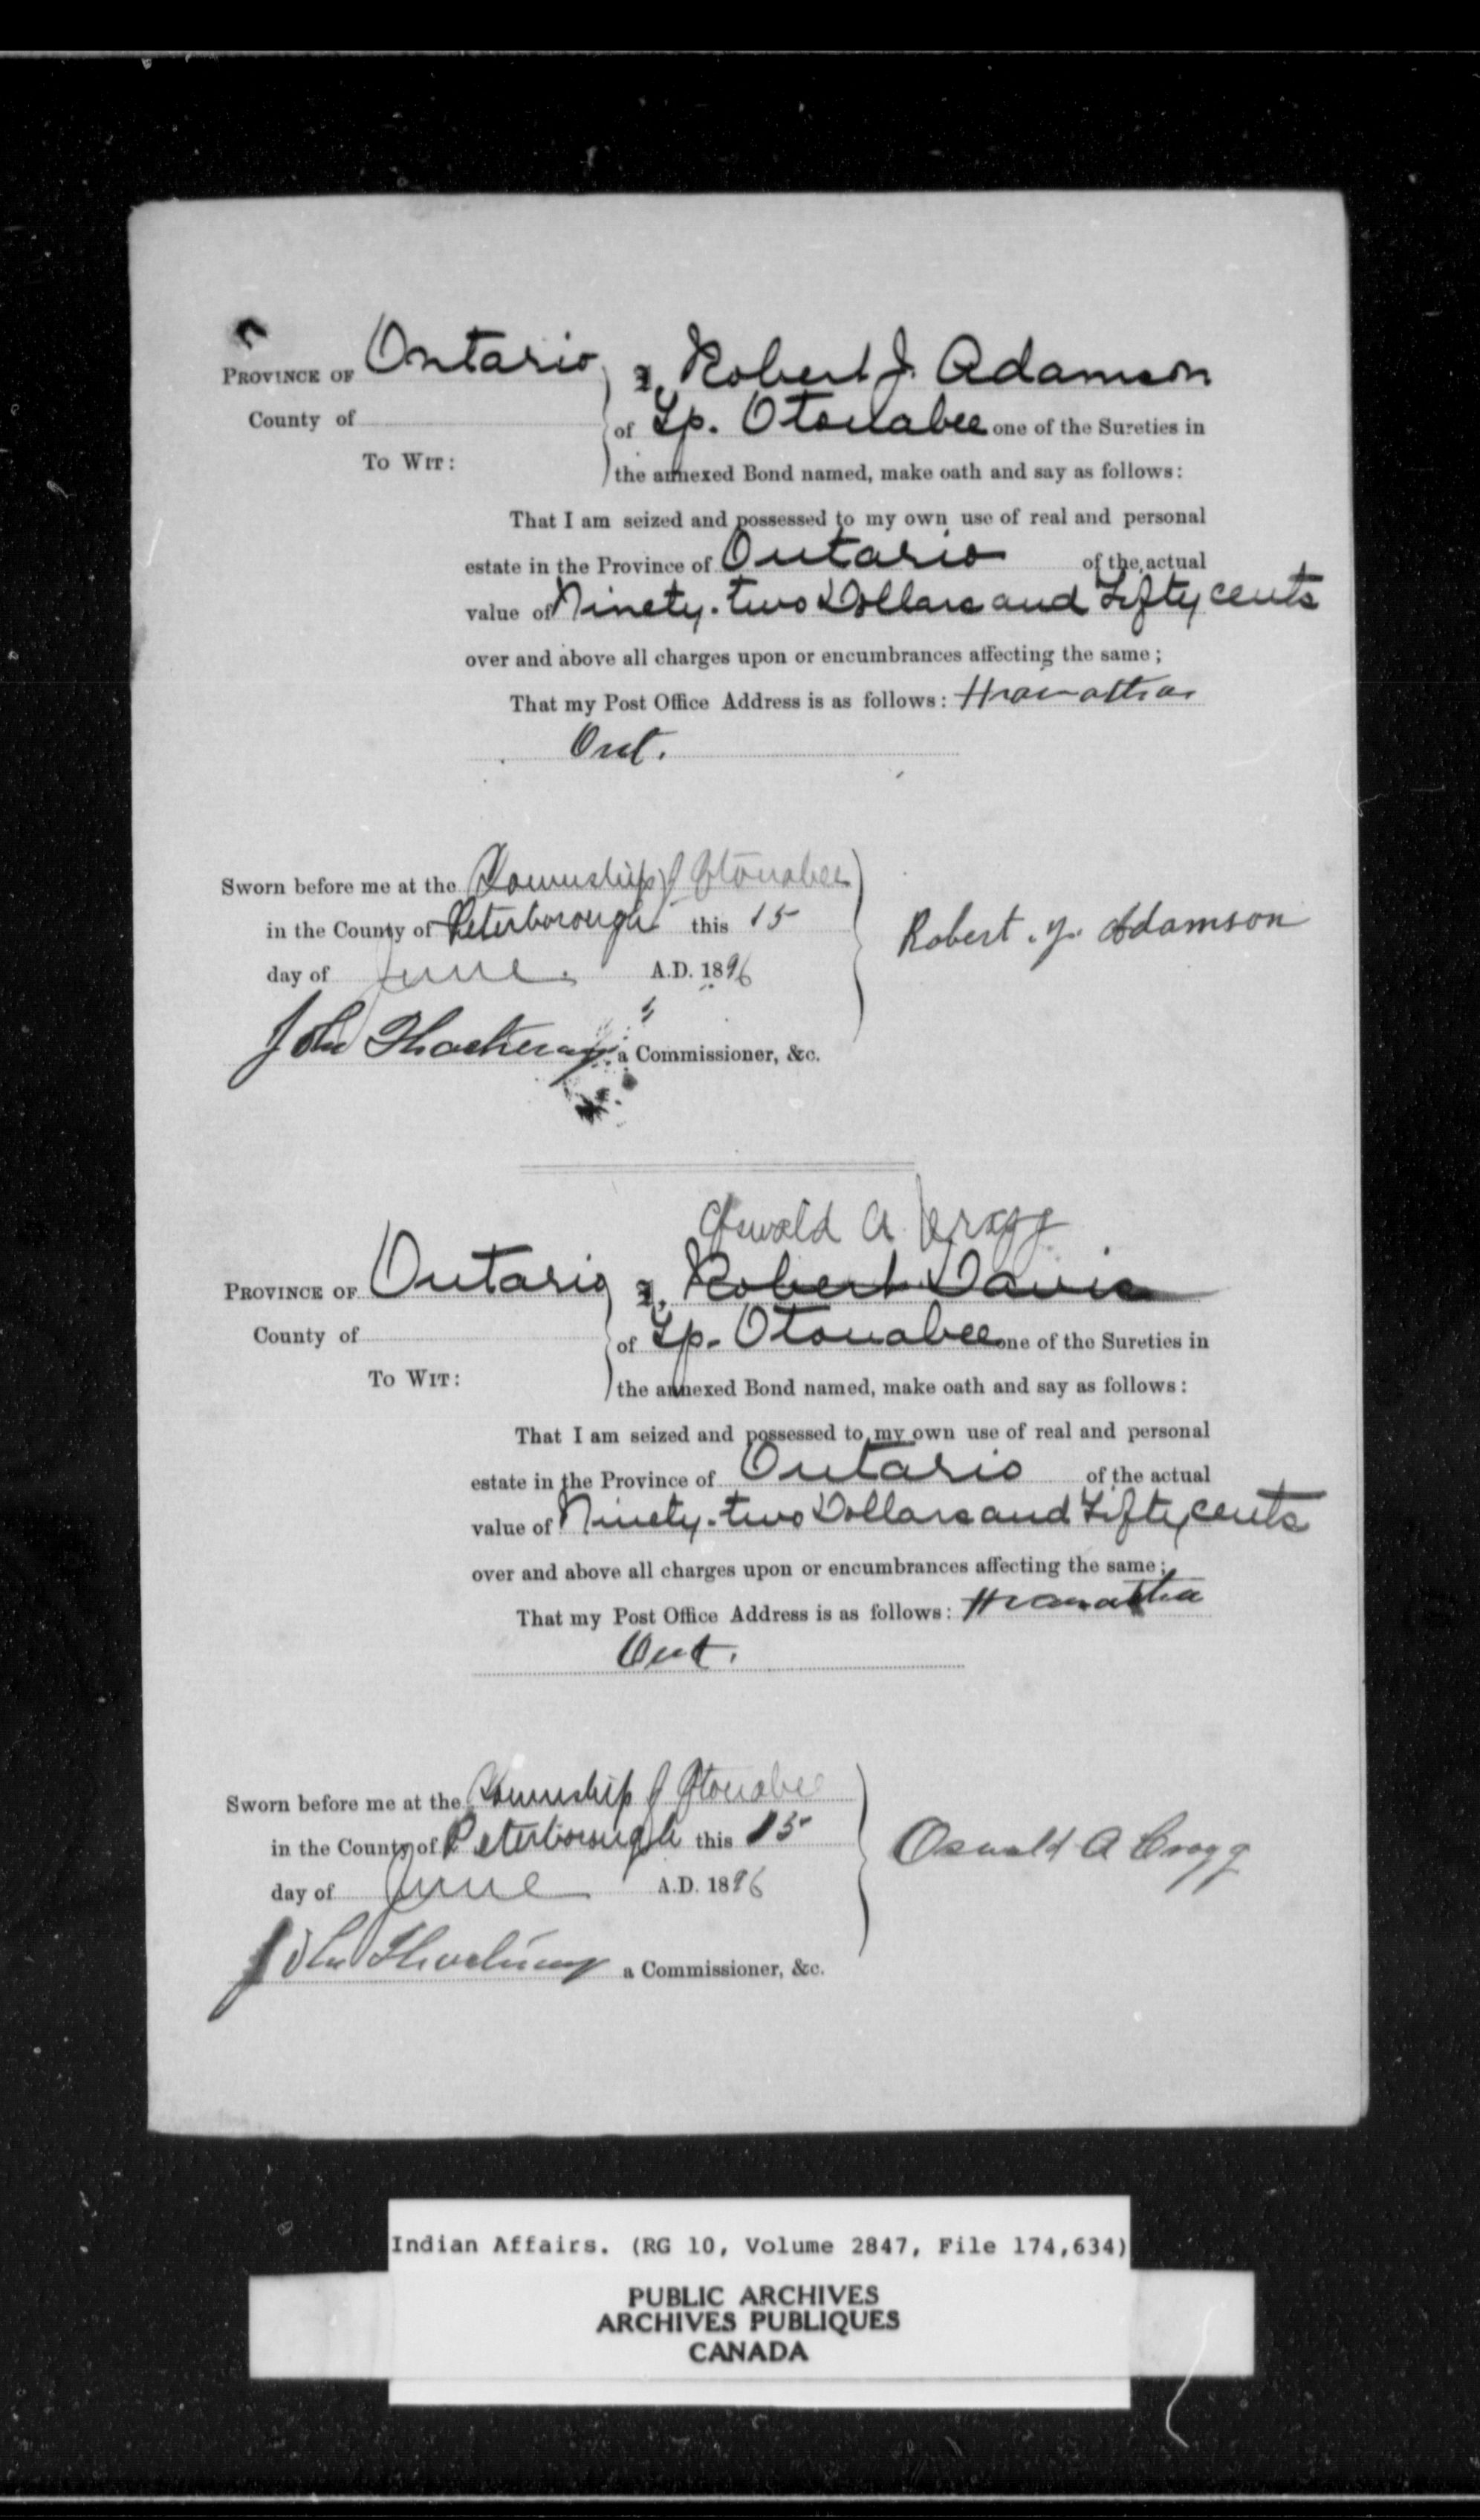 PROVINCE OF Ontario I, Robert J. Adamson
County of of Tp. Otonabee one of the Sureties in
TO WIT: the annexed Bond named, make oath and say as follows:
That I am seized and possessed to my own use of real and personal
estate in the Province of Ontario of the actual
value of Ninety-two Dollars and Fifty cents
over and above all charges upon or encumbrances affecting the same;
That my Post Office Address is as follows: Hiawatha
Ont.
Sworn before me at the Township of Otonabee
in the County of Peterborough this 15
day of June A.D. 1896
Robert. J. Adamson
John Thackeray a Commissioner, &c.
Oswald A. Cragg
PROVINCE OF Ontario I, Robert Davis
County of of Tp. Otonabee one of the Sureties in
TO WIT: the annexed Bond named, make oath and say as follows:
That I am seized and possessed to my own use of real and personal
estate in the Province of Ontario of the actual
value of Ninety-two Dollars and Fifty cents
over and above all charges upon or encumbrances affecting the same;
That my Post Office Address is as follows: Hiawatha
Ont.
Sworn before me at the Township of Otonabee
in the County of Peterborough this 15
day of June A.D. 1896
Oswald A Cragg
John Thackeray a Commissioner, &c.
Indian Affairs. (RG 10, Volume 2847, File 174,634)
PUBLIC ARCHIVES
ARCHIVES PUBLIQUES
CANADA